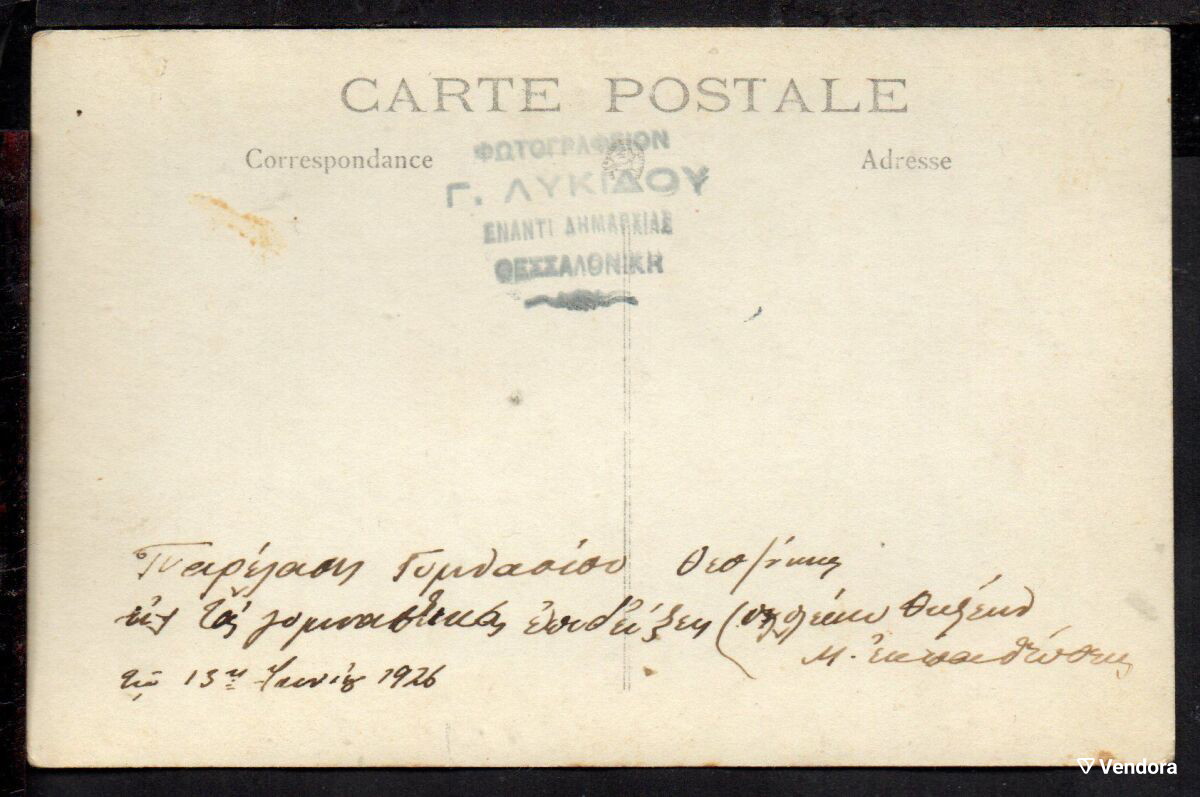 CARTE POSTALE
Correspondance
Adresse
ΦΩΤΟΓΡΑΦΕΙΟΝ
Γ. ΛΥΚΙΔΟΥ
ΕΝΑΝΤΙ ΔΗΜΑΡΧΙΑΣ
ΘΕΣΣΑΛΟΝΙΚΗ
Παρέλασις Γυμνασίου Θεσ/νίκης
εἰς τὰς γυμναστικὰς ἐπιδείξεις
Μ. Ἐκπαιδεύσεως
τῇ 13ῃ Ἰουνίου 1926
Vendora